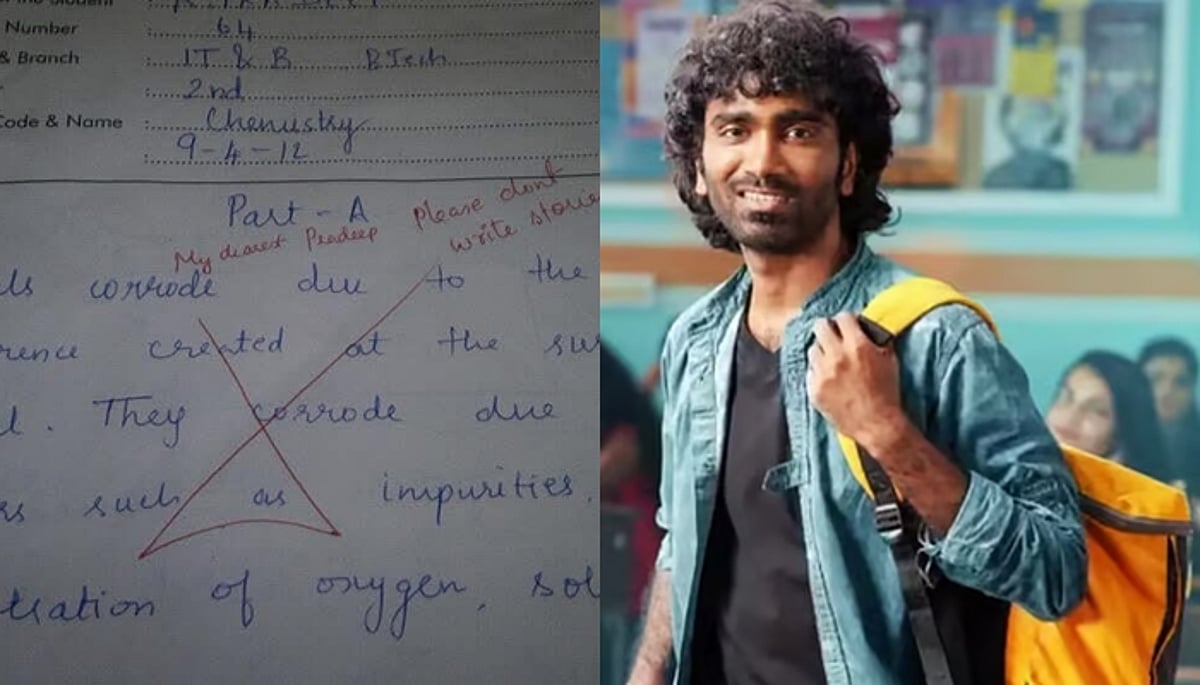 Number : 64
& Branch : IT & B BTech
: 2nd
Code & Name : Chemistry
: 9-4-12
Part - A
please dont
My dearest Pradeep
write storie
ls corrode due to the
rence created at the su
l. They corrode due
rs such as impurities,
tration of oxygen, sol